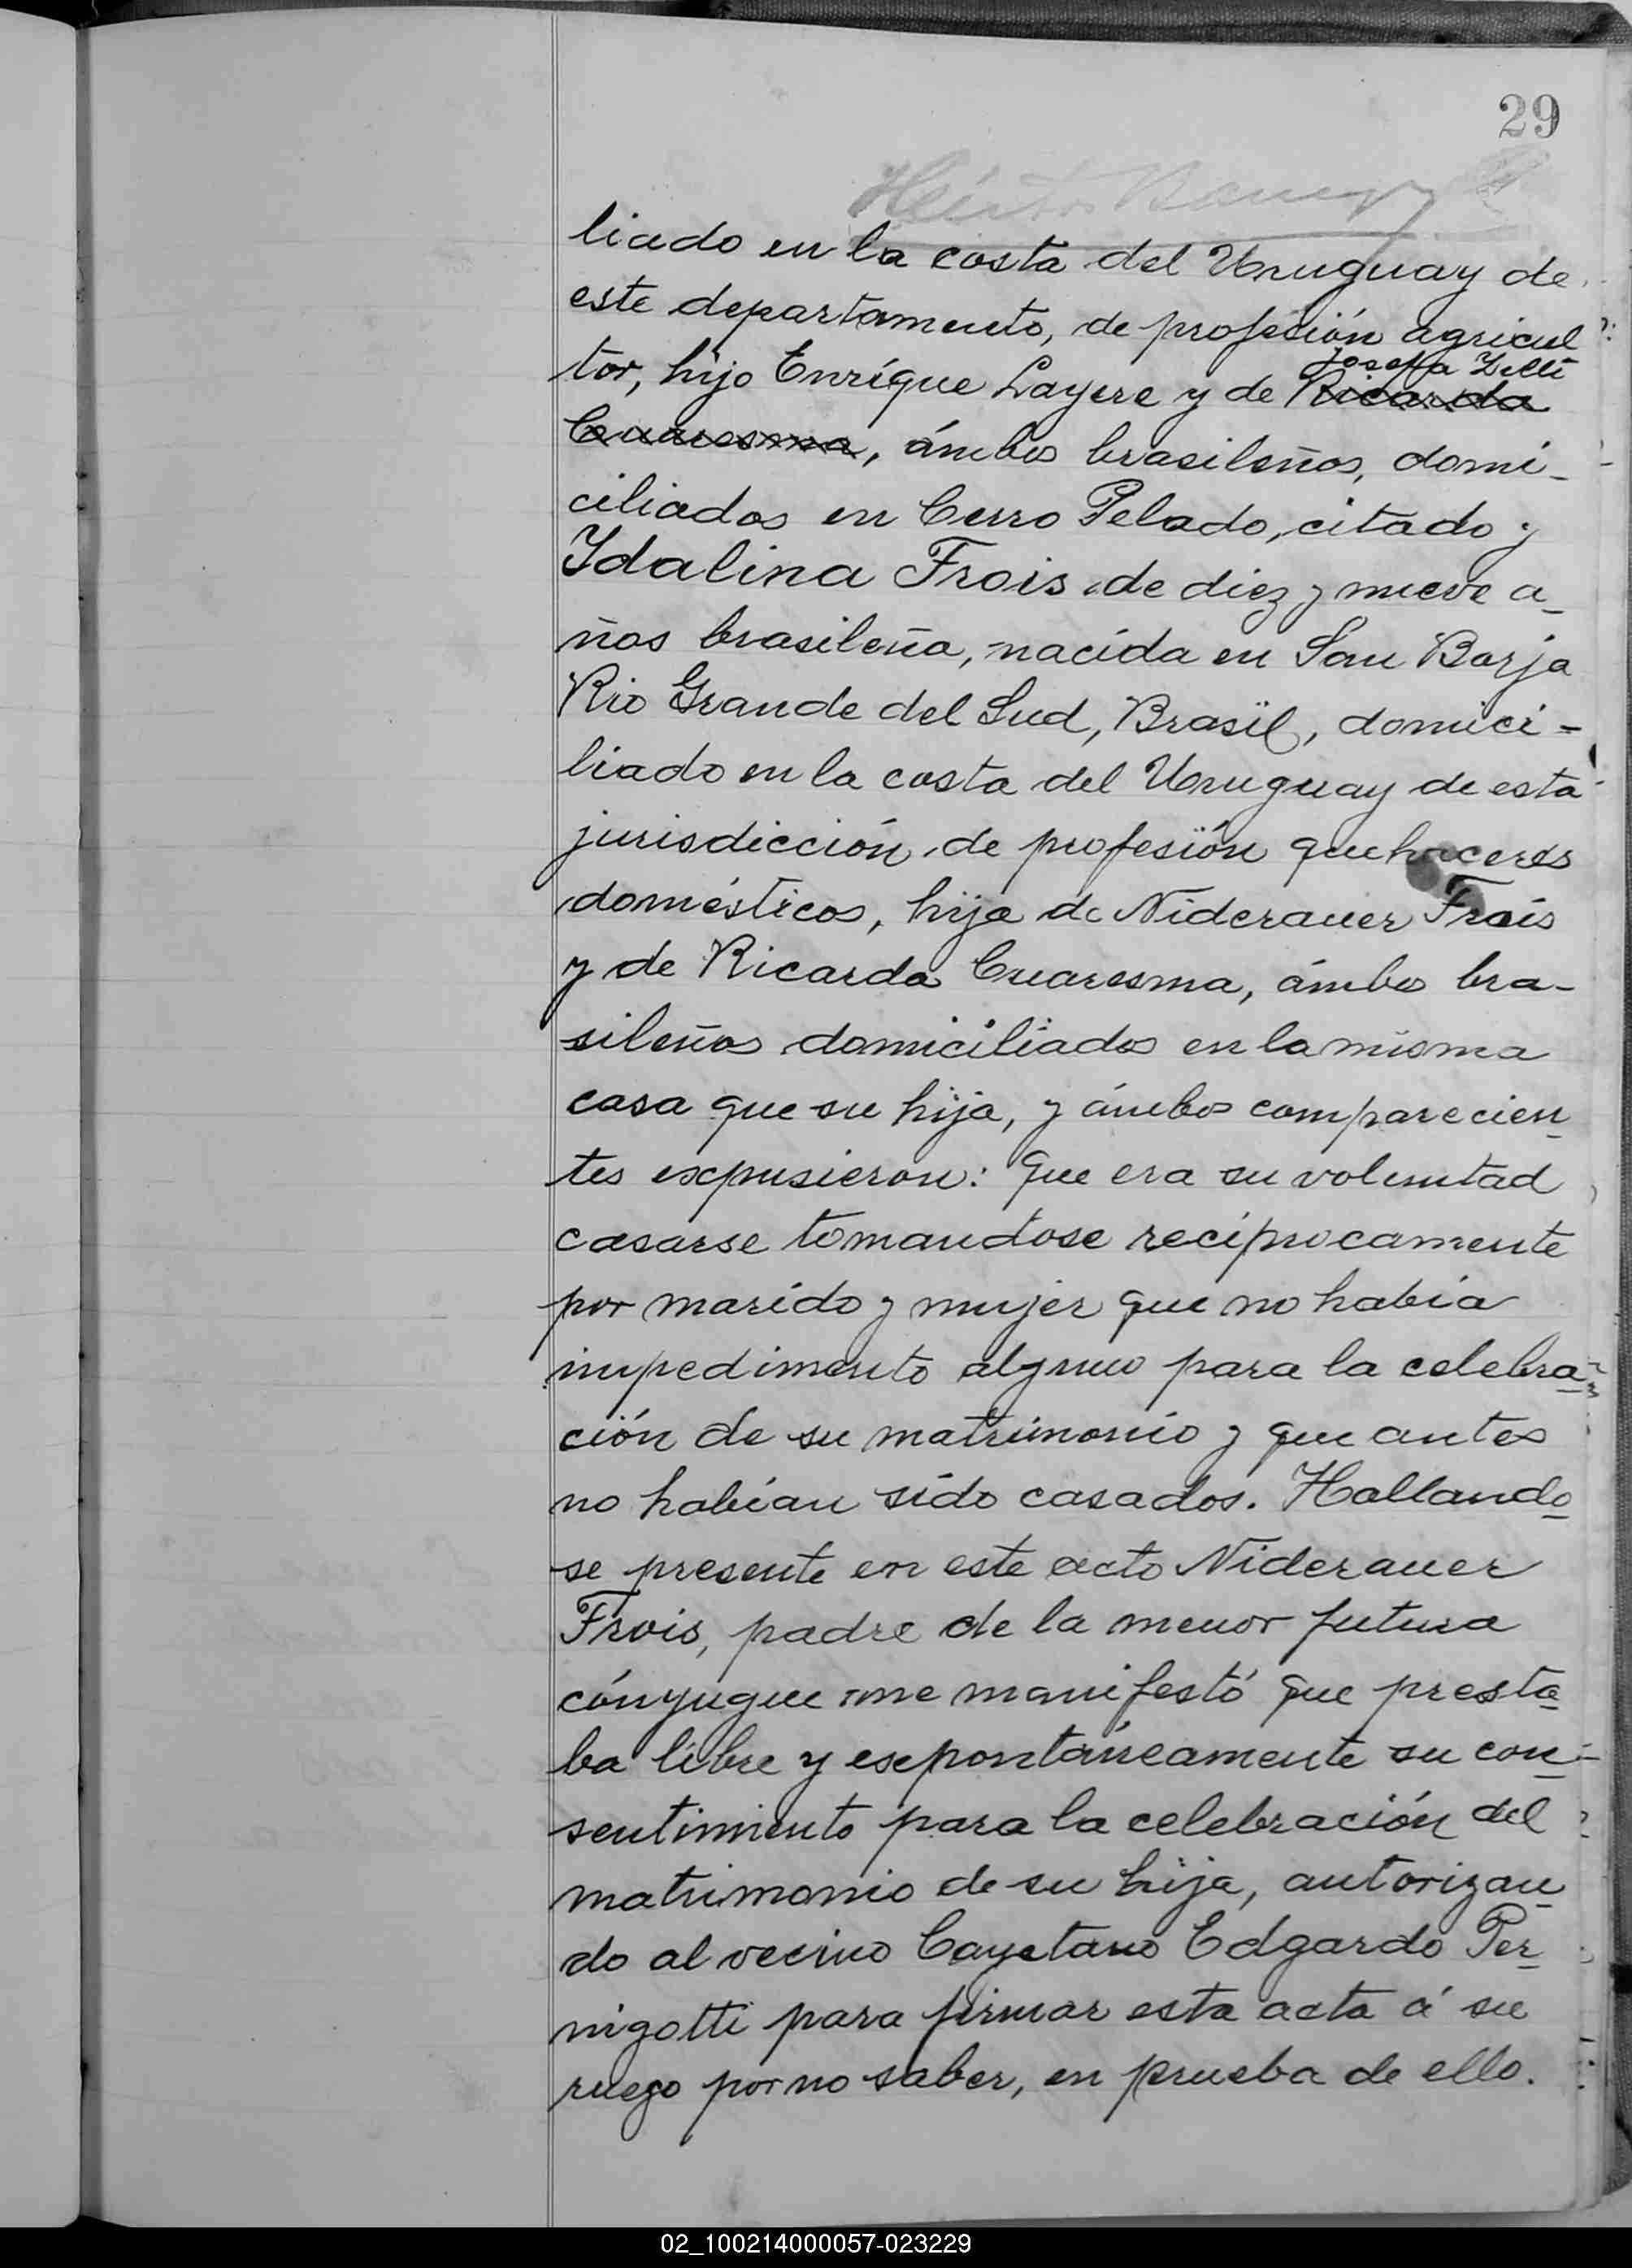 29
liado en la costa del Uruguay de
este departamento, de profesión agricul
Josefa Zelli
tor, hijo Enríque Layere y de Ricarda
Cuaresma, ámbos brasileños, domi-
ciliados en Cerro Pelado, citado y
Ydalina Frois de diez y nueve a-
ños brasileña, nacida en San Borja
Rio Grande del Sud, Brasil, domici=
liado en la costa del Uruguay de esta
jurisdicción de profesión quehaceres
domésticos, hija de Niderauer Frois
y de Ricarda Cuaresma, ámbos bra-
sileños domiciliados en la misma
casa que su hija, y ámbos comparecien
tes expusieron: que era su voluntad
casarse tomandose recíprocamente
por marído y mujer que no había
impedimento alguno para la celebra
ción de su matrimonio y que antes
no habían sído casados. Hallando
se presente en este acto Niderauer
Frois, padre de la menor futura
cónyugue me manifestó que presta
ba libre y espontáneamente su con-
sentimiento para la celebración del
matrimonio de su hija, autorizan
do al vecino Cayetano Edgardo Per
nigotti para firmar esta acta á su
ruego por no saber, en prueba de ello.
02_100214000057-023229